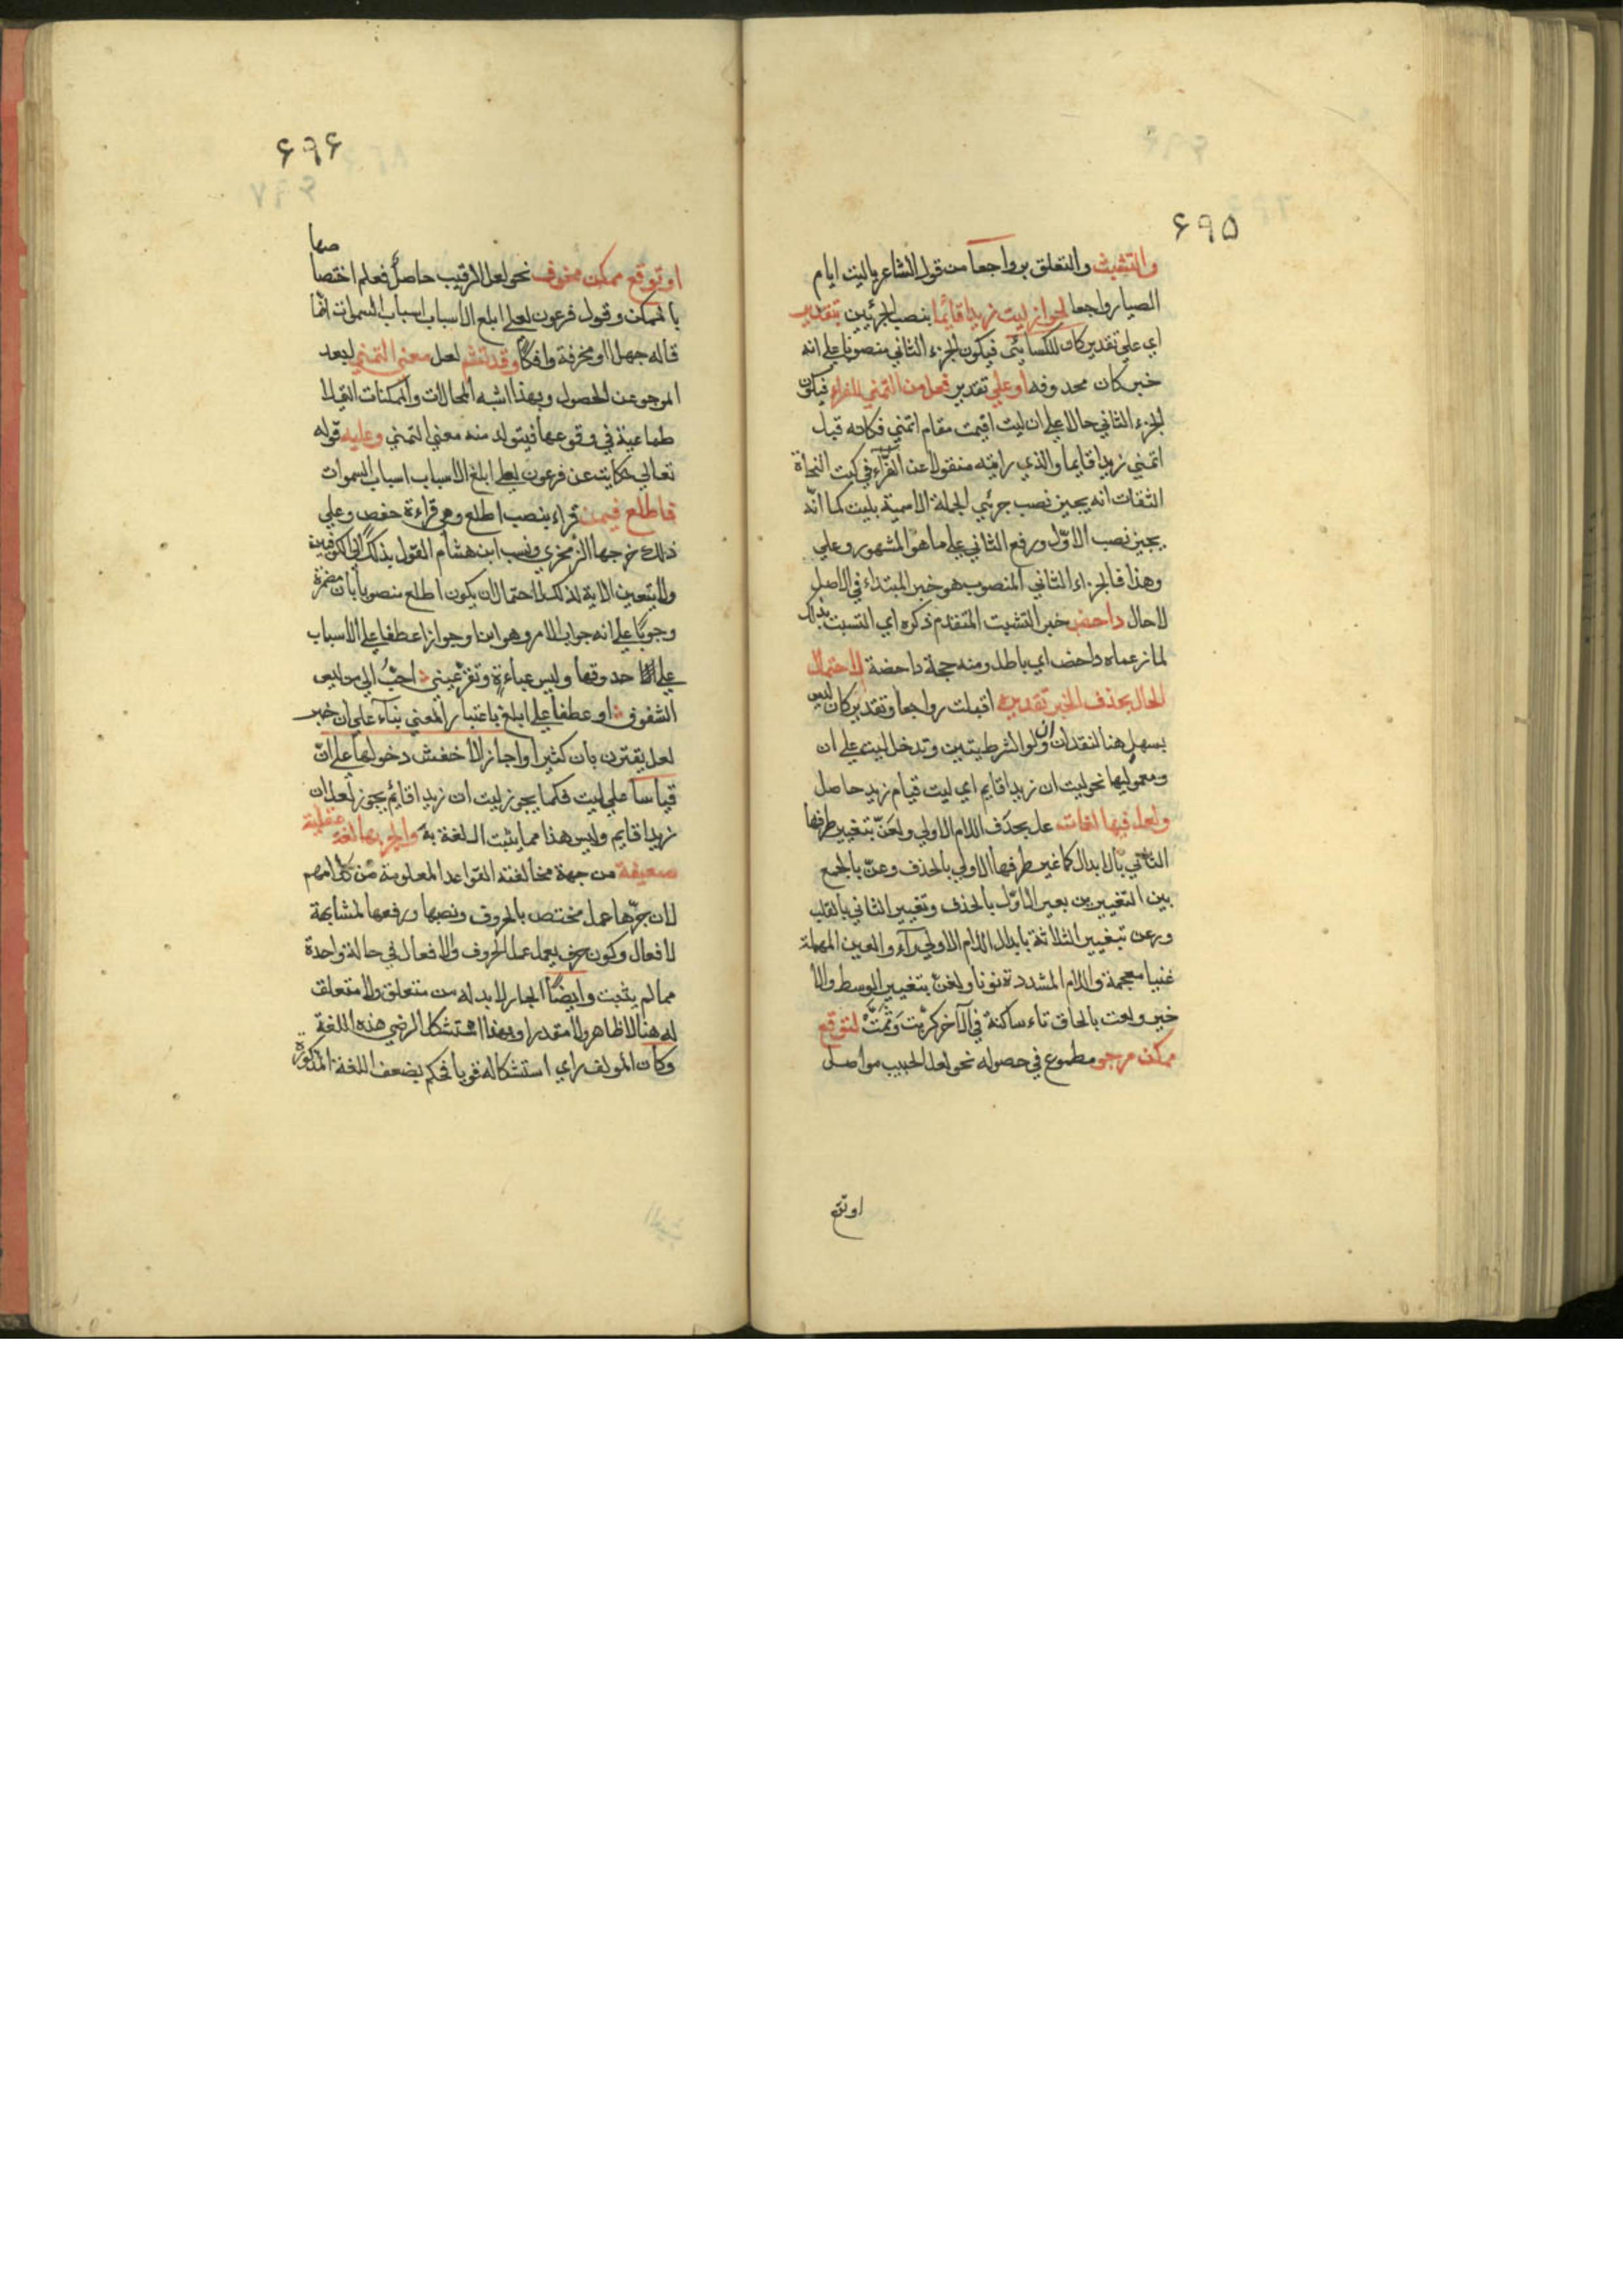 ۶۹۵
والتشبث والتعلق برواجعا من قول الشاعر ياليت ايام
الصبا رواجعا لجواز ليت زيدا قائما بنصب الجزئين بتقدير
اي علي تقدير كان للكسائي فيكون الجزء الثاني منصوبا علي انه
خبر كان محذوفه او علي تقدير فعل من التمني للفراء فيكون
الجزء الثاني حالا علي ان ليت اقيمت مقام اتمني فكانه قيل
اتمني زيدا قايما والذي رايته منقولا عن الفراء في كتب النحاة
الثقات انه يجيز نصب جزئي الجملة الاسمية بليت كما انه
يجيز نصب الاول ورفع الثاني علي ما هو المشهور وعلي
وهذا فالجزاء الثاني المنصوب هو خبر المبتداء في الاصل
لا حال داحض خبر التشبث المتقدم ذكره اي التشبث بذلك
لما زعماه داحض اي باطل ومنه حجة داحضة لاحتمال
الحال بحذف الخبر تقديره اقبلت رواجعا وتقدير كان ليس
بسهل هنا لفقدان ان ولو الشرطيتين وتدخل ليت علي ان
ومعموليها نحو ليت ان زيدا قايم اي ليت قيام زيد حاصل
ولعل فيها لغات عل بحذف اللام الاولي ولعن بتغيير طرفها
الثاني بالابدال كما غير طرفها الاولي بالحذف وعن بالجمع
بين التغييرين بعير الاول بالحذف وتغيير الثاني بالقلب
ورعن بتغيير الثلاثة بابدال اللام الاولي راء والعين المهملة
غنيا معجمة واللام المشددة نونا ولغن بتغيير الوسط والا
خير ولعت بالحاق تاء ساكنة في الآخر كربت وثمت لتوقع
ممكن مرجو مطموع في حصوله نحو لعل الحبيب مواصل
اوتق
۶۹۶
صها
او توقع ممكن مخوف نحو لعل الرقيب حاصل فعلم اختصا
بالممكن وقول فرعون لعلي ابلغ الاسباب اسباب السموات انما
قاله جهلا او مخرفة وافكا وقد تشم لعل معني التمني لبعد
المرجو عن الحصول وبهذا اشبه المحالات والممكنات التي لا
طماعية في وقوعها فيتولد منه معني التمني وعليه قوله
تعالي حكاية عن فرعون لعلي ابلغ الاسباب اسباب السموات
فاطلع فيمن قراء بنصب اطلع وهي قراءة حفص وعلي
ذلك خرجها الزمخشري ونسب ابن هشام القول بذلك الي الكوفيين
ولا يتعين الاية لذلك لاحتمال ان يكون اطلع منصوبا بان مضمرة
وجوبا علي انه جواب الامر وهو ابن وجوازا عطفا علي الاسباب
علي حد وقها ولبس عباءة وتقر عيني احب الي من لبس
الشفوف او عطفا علي ابلغ باعتبار المعني بناء علي ان خبر
لعل يقترن بان كثيرا واجاز الاخفش دخولها علي ان
قياسا علي ليت فكما يجوز ليت ان زيدا قائم يجوز لعل ان
زيدا قايم وليس هذا مما يثبت اللغة به والجر بها لغة عقلية
ضعيفة من جهة مخالفته القواعد المعلومة من كلامهم
لان جرها عمل مختص بالحروف ونصبها ورفعها لمشابهة
لافعال وكون حرف يعمل عمل الحروف والافعال في حالة واحدة
مما لم يثبت وايضا الجار لابد له من متعلق ولا متعلق
له هنا لا ظاهر ولا مقدر او بهذا استشكل الرضي هذه اللغة
وكان المولف راي استشكاله قويا فحكم بضعف اللغة المذكورة